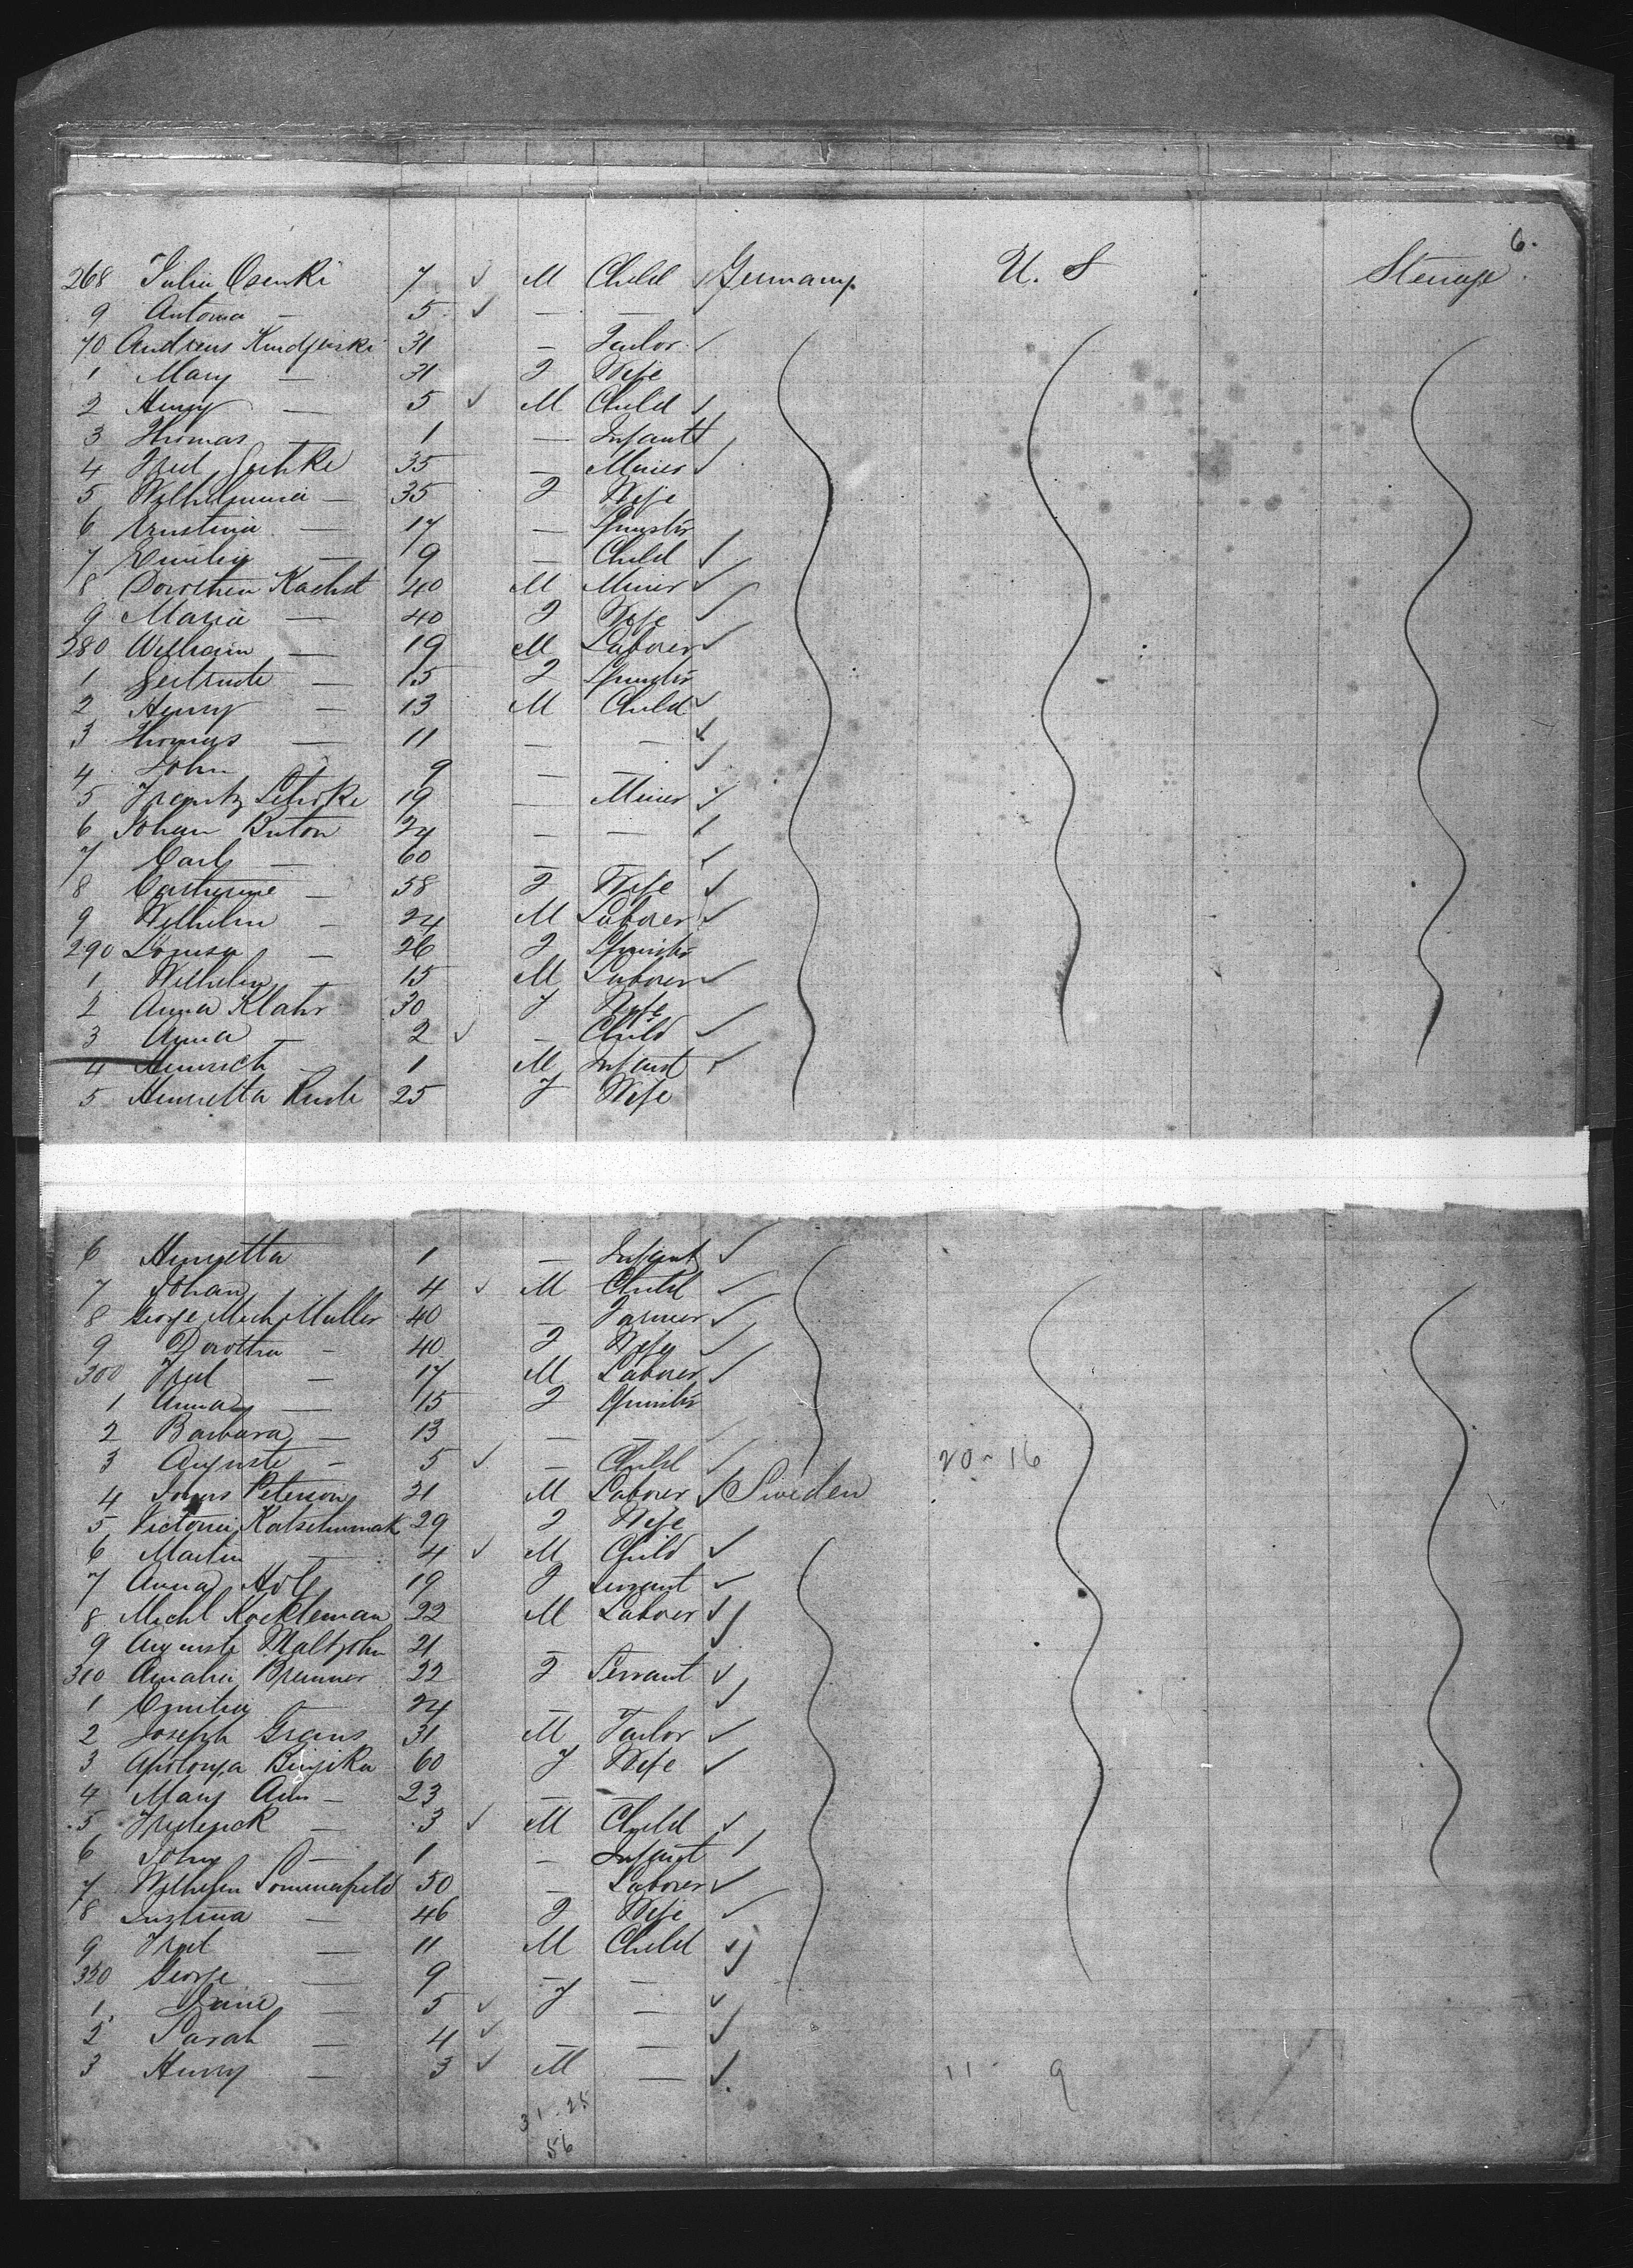 6.
268 Julia Osenki 7 ✓ M Child ✓ Germany U. S Steerage
9 Antonia — 5 ✓ — — ✓
70 Andreas 31 — Tailor ✓
1 Mary — 31 F Wife
2 Henry — 5 ✓ M Child ✓
3 Thomas — 1 — Infant ✓
4 Fred 35 — Miner ✓
5 Wilhelmina — 35 F Wife
6 Ernstina — 17 — Spinster ✓
7 Emilia — 9 — Child ✓
8 Dorothea Kachst 40 M Miner ✓
9 Maria — 40 F Wife ✓
280 William — 19 M Laborer ✓
1 Gertrude — 15 F Spinster
2 Henry — 13 M Child ✓
3 Thomas — 11 — — ✓
4 John 9 — — ✓
5 Frantz 19 — Miner ✓
6 Johan Buton 24 — — ✓
7 Carl — 60 ✓
8 Catherine — 58 F Wife ✓
9 Wilhelm — 24 M Laborer ✓
290 Louisa — 26 F Spinster
1 Wilhelm — 15 M Laborer ✓
2 Anna Klahr 30 F Wife
3 Anna — 2 ✓ — Child ✓
4 Heinrich — 1 M Infant ✓
5 Henrietta 25 F Wife
6 Henrietta 1 — Infant ✓
7 Johan 4 ✓ M Child ✓
8 George Mich Muller 40 — Farmer ✓
9 Dorothea — 40 F Wife ✓
300 Fred — 17 M Laborer ✓
1 Anna — 15 F Spinster
2 Barbara — 13 — —
3 Auguste — 5 ✓ — Child ✓ 20-16
4 Peterson 21 M Laborer ✓ Sweden
5 Victoria 29 F Wife
6 Martin — 4 ✓ M Child ✓
7 Anna 19 F Servant ✓
8 Michl Kockleman 22 M Laborer ✓
9 Auguste Maltzohn 21 — — ✓
310 Amalia Brenner 22 F Servant ✓
1 Emilia — 24 — — ✓
2 Joseph Grams 31 M Tailor ✓
3 60 F Wife ✓
4 Mary Ann — 23 — —
5 Frederick — 3 ✓ M Child ✓
6 John — 1 — Infant ✓
7 Wilhelm Sommerfield 50 — Laborer ✓
8 Justina — 46 F Wife ✓
9 Fred — 11 M Child ✓
320 George — 9 — — ✓
1 Jane — 5 ✓ F — ✓
2 Sarah — 4 ✓ — — ✓
3 Henry — 3 ✓ M — ✓ 11- 9
31-25
56